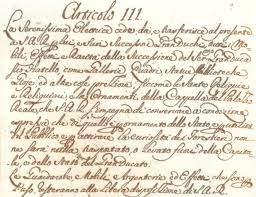 Articolo III.
La Serenissima Elettrice cede, dà, e trasferisce al presente
a S.A.R. per Lui, e Suoi Successori GranDuchi, tutti i Mo-
bili, Effetti, e Rarità della Successione del Ser.mo GranDuca
suo fratello come Gallerie, Quadri, Statue, Biblioteche
Gioje, ed altre cose preziose, siccome le Sante Reliquie
e Reliquiari, e loro Ornamenti della Cappella del Palazzo
Reale, che S.A.R. si impegna di conservare, a condizione
espressa che di quello è per ornamento dello Stato, per utilità
del Pubblico, e per attirare la curiosità dei Forestieri, non
ne sarà nulla trasportato, o levato fuori della Capita-
le, e dello Stato del GranDucato.
La Guardaroba, e Mobili, Argenterie, ed Effetti che sono per
uso, resteranno alla Libera disposizione di S.A.R.